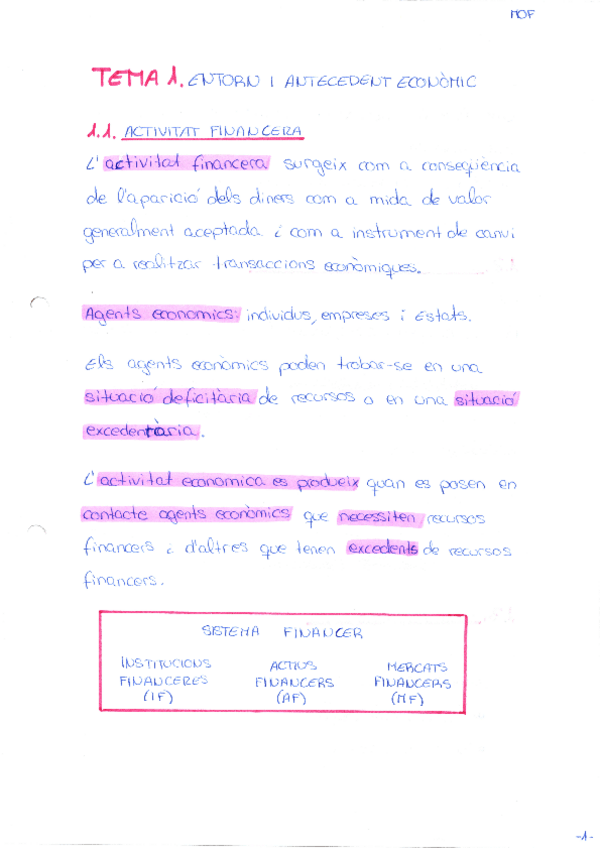 MOF
TEMA 1. ENTORN I ANTECEDENT ECONÒMIC
1.1. ACTIVITAT FINANCERA
L'activitat financera surgeix com a conseqüència
de l'aparició dels diners com a mida de valor
generalment aceptada i com a instrument de canvi
per a realitzar transaccions econòmiques.
Agents economics: individus, empreses i Estats.
Els agents econòmics poden trobar-se en una
situació deficitària de recursos o en una situació
excedentària.
L'activitat economica es produeix quan es posen en
contacte agents econòmics que necessiten recursos
financers i d'altres que tenen excedents de recursos
financers.
SISTEMA FINANCER
INSTITUCIONS ACTIUS MERCATS
FINANCERES FINANCERS FINANCERS
(IF) (AF) (MF)
-1-